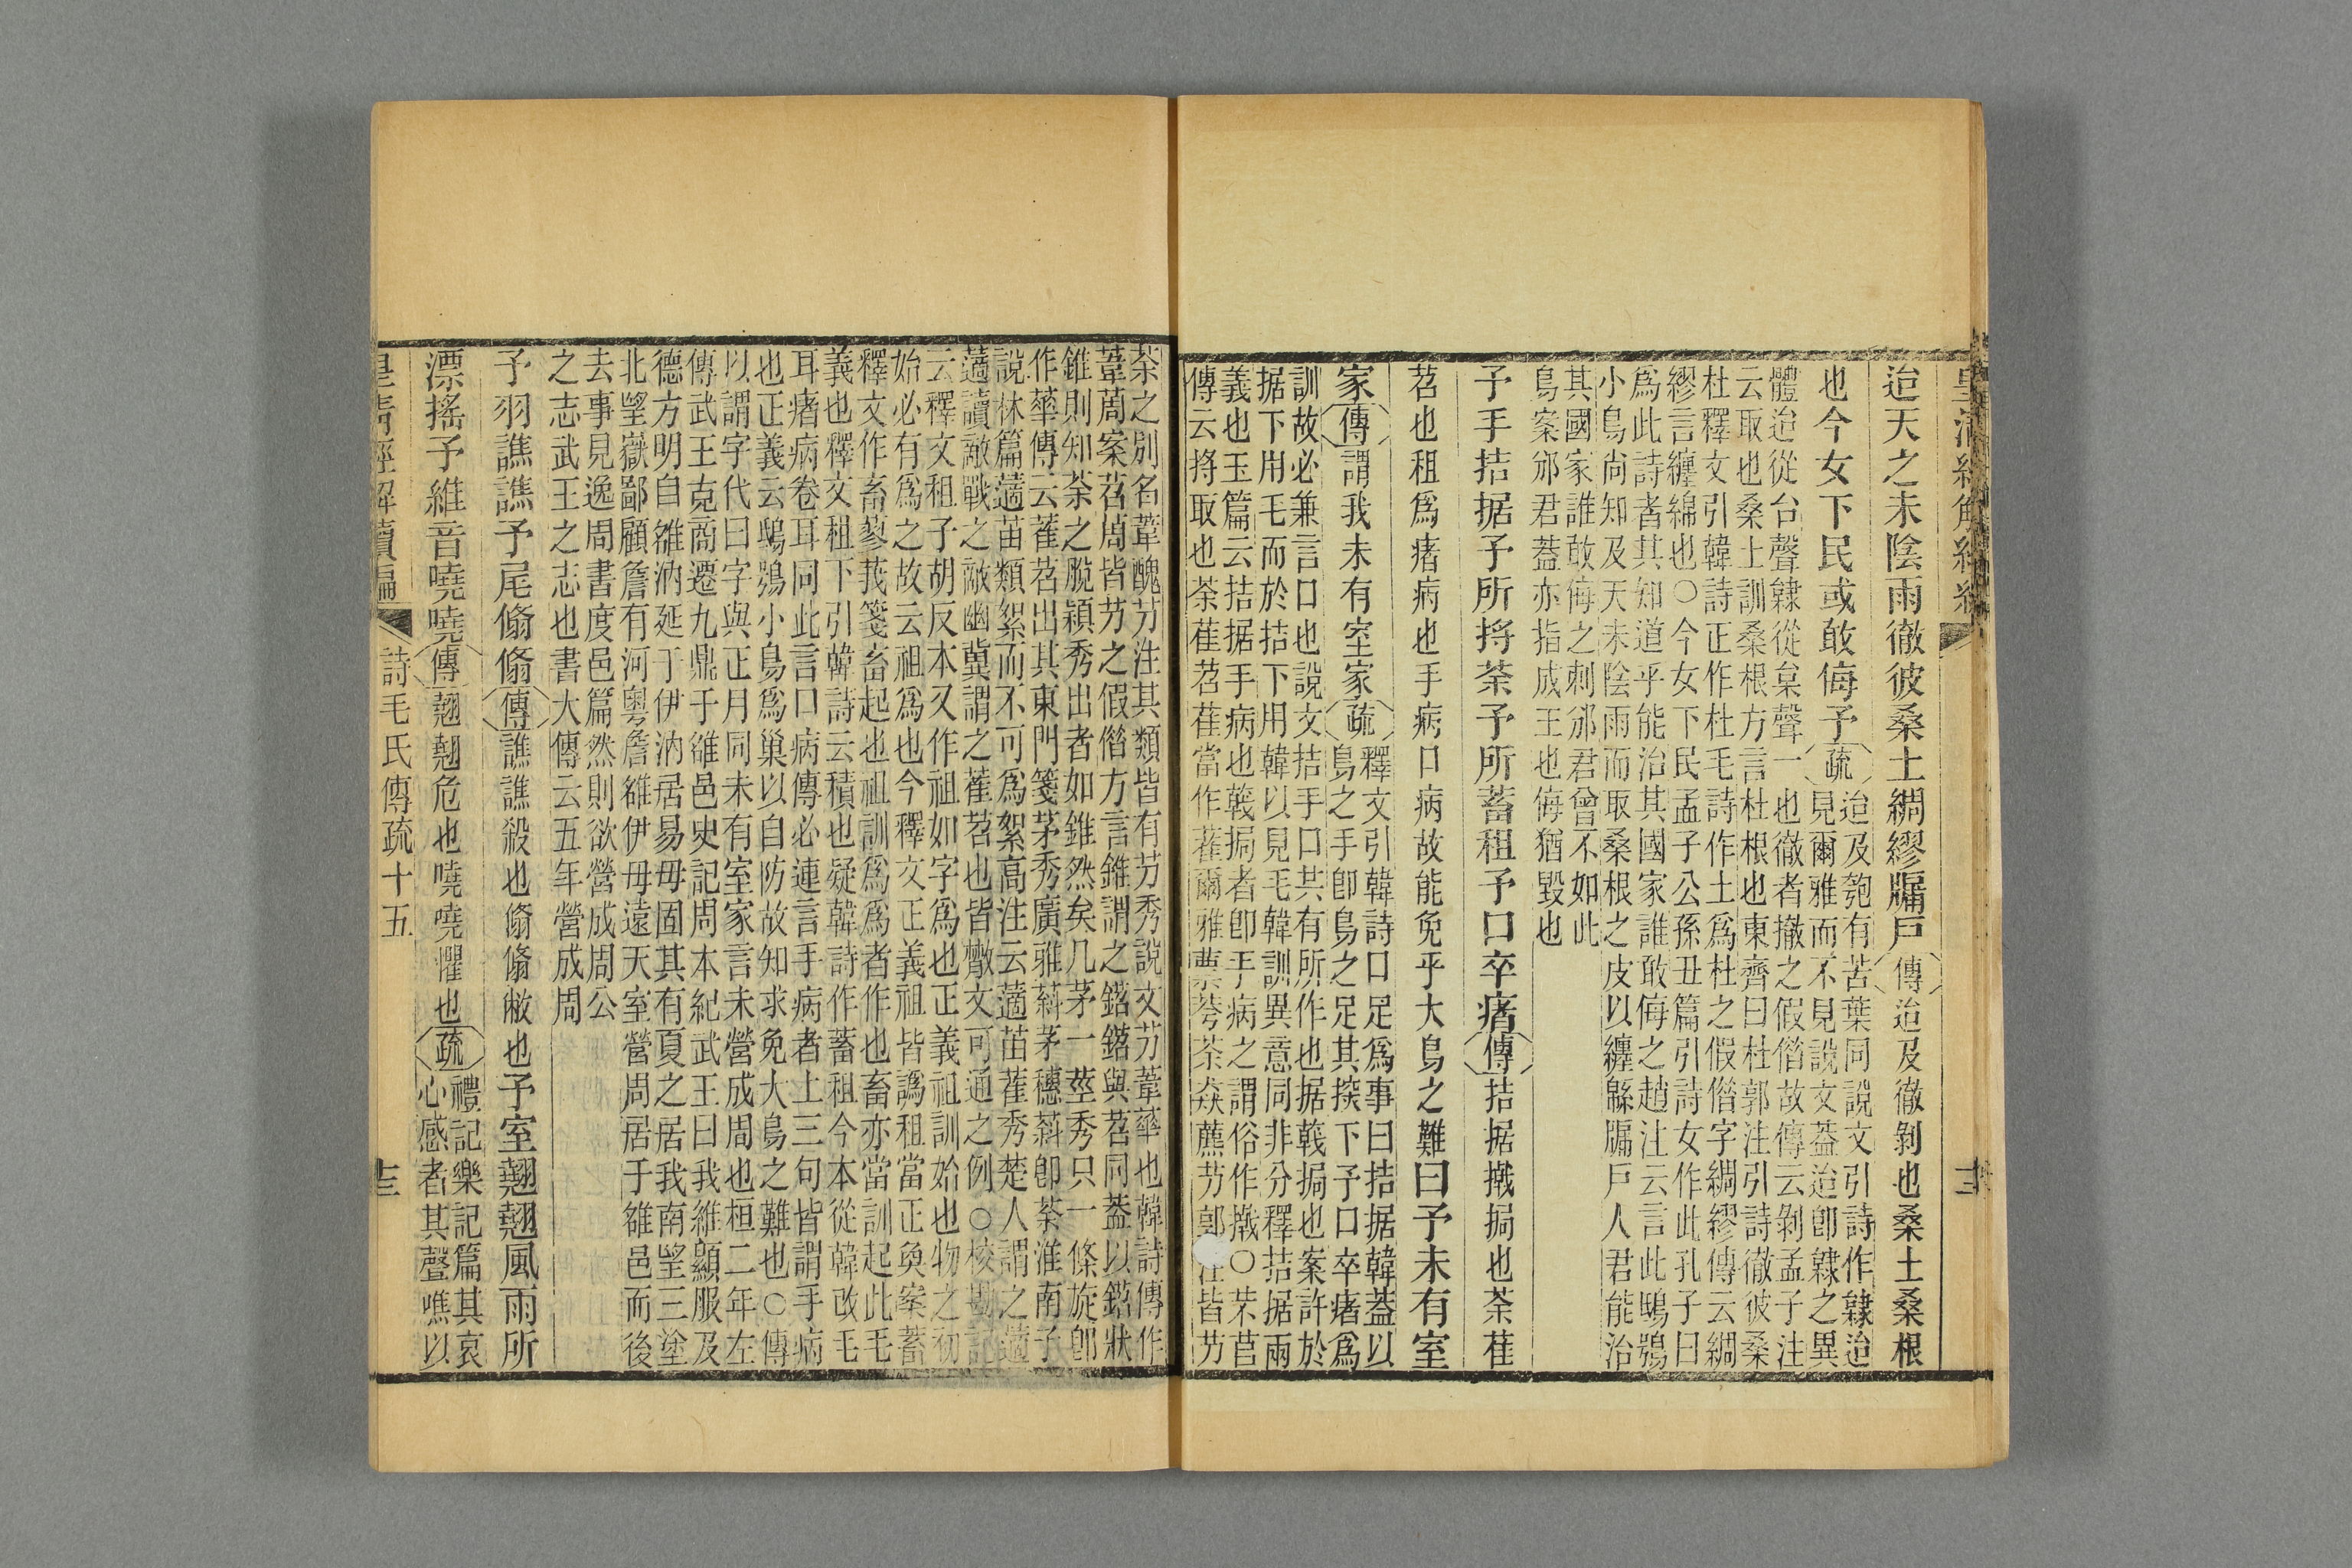 迨天之未陰雨徹彼桑土綢繆牖戶傳迨及徹剝也桑土桑根
也今女下民或敢侮予疏迨及匏有苦葉同說文引詩作隸迨
見爾雅而不見說文葢迨卽隸之異
體迨從台聲隸從枲聲一也徹者撤之假偕故傳云剝孟子注
云取也桑土訓桑根方言杜根也東齊曰杜郭注引詩徹彼桑
杜釋文引韓詩正作杜毛詩作土爲杜之假偕字綢繆傳云綢
繆言纏綿也○今女下民孟子公孫丑篇引詩女作此孔子曰
爲此詩者其知道乎能治其國家誰敢侮之趙注云言此鴟鴞
小鳥尚知及天未陰雨而取桑根之皮以纏緜牖戶人君能治
其國家誰敢侮之刺邠君曾不如此
鳥案邠君葢亦指成王也侮猶毀也
予手拮据予所捋荼予所蓄租予口卒瘏傳拮据撠挶也荼萑
苕也租爲瘏病也手病口病故能免乎大鳥之難曰予未有室
家傳謂我未有室家疏釋文引韓詩口足爲事曰拮据韓葢以
鳥之手卽鳥之足其撠下予口卒瘏爲
訓故必兼言口也說文拮手口共有所作也据戟挶也案許於
据下用毛而於拮下用韓以見毛韓訓異意同非分釋拮据兩
義也玉篇云拮据手病也戟挶者卽手病之謂俗作撠○芣苢
傳云捋取也荼萑苕萑當作雚爾雅蔈荂荼猋藨芀郭注皆芀
荼之別名葦醜芀注其類皆有芀秀說文芀葦華也韓詩傳作
葦蔐案苕蔐皆芀之假偕方言錐謂之鍣鍣與苕同葢以鍣狀
錐則知荼之脫穎秀出者如錐然矣凡茅一莖秀只一條旋卽
作華傳云雚苕出其東門箋茅秀廣雅䔑茅穗䔑卽荼淮南子
說林篇薖苗類絮而不可爲絮高注云薖苗雚秀楚人謂之薖
薖讀敵戰之敵幽冀謂之雚苕也皆㪣文可通之例○校勘記
云釋文租子胡反本又作祖如字爲也正義祖訓始也物之初
始必有爲之故云祖爲也今釋文正義祖皆譌租當正奐案蓄
釋文作畜蓼莪箋畜起也祖訓爲爲者作也畜亦當訓起此毛
義也釋文租下引韓詩云積也疑韓詩作蓄租今本從韓改毛
耳瘏病卷耳同此言口病傳必連言手病者上三句皆謂手病
也正義云鴟鴞小鳥爲巢以自防故知求免大鳥之難也○傳
以謂字代曰字與正月同未有室家言未營成周也桓二年左
傳武王克商遷九鼎于雒邑史記周本紀武王曰我維顯服及
德方明自雒汭延于伊汭居易毋固其有夏之居我南望三塗
北望嶽鄙顧詹有河粵詹雒伊毋遠天室營周居于雒邑而後
去事見逸周書度邑篇然則欲營成周公
之志武王之志也書大傳云五年營成周
予羽譙譙予尾翛翛傳譙譙殺也翛翛敝也予室翹翹風雨所
漂搖予維音嘵嘵傳翹翹危也嘵嘵懼也疏禮記樂記篇其哀
心感者其聲噍以
皇清經解續編 詩毛氏傳疏十五 十三